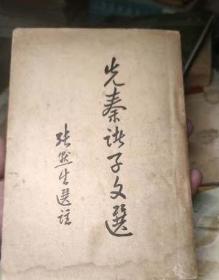 先秦諸子文選
張默生選註